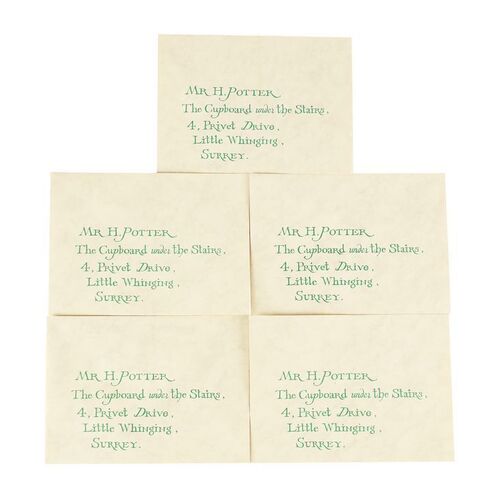 Mr H. Potter
The Cupboard under the Stairs,
4, Privet Drive,
Little Whinging,
Surrey.
Mr H. Potter
The Cupboard under the Stairs,
4, Privet Drive,
Little Whinging,
Surrey.
Mr H. Potter
The Cupboard under the Stairs,
4, Privet Drive,
Little Whinging,
Surrey.
Mr H. Potter
The Cupboard under the Stairs,
4, Privet Drive,
Little Whinging,
Surrey.
Mr H. Potter
The Cupboard under the Stairs,
4, Privet Drive,
Little Whinging,
Surrey.